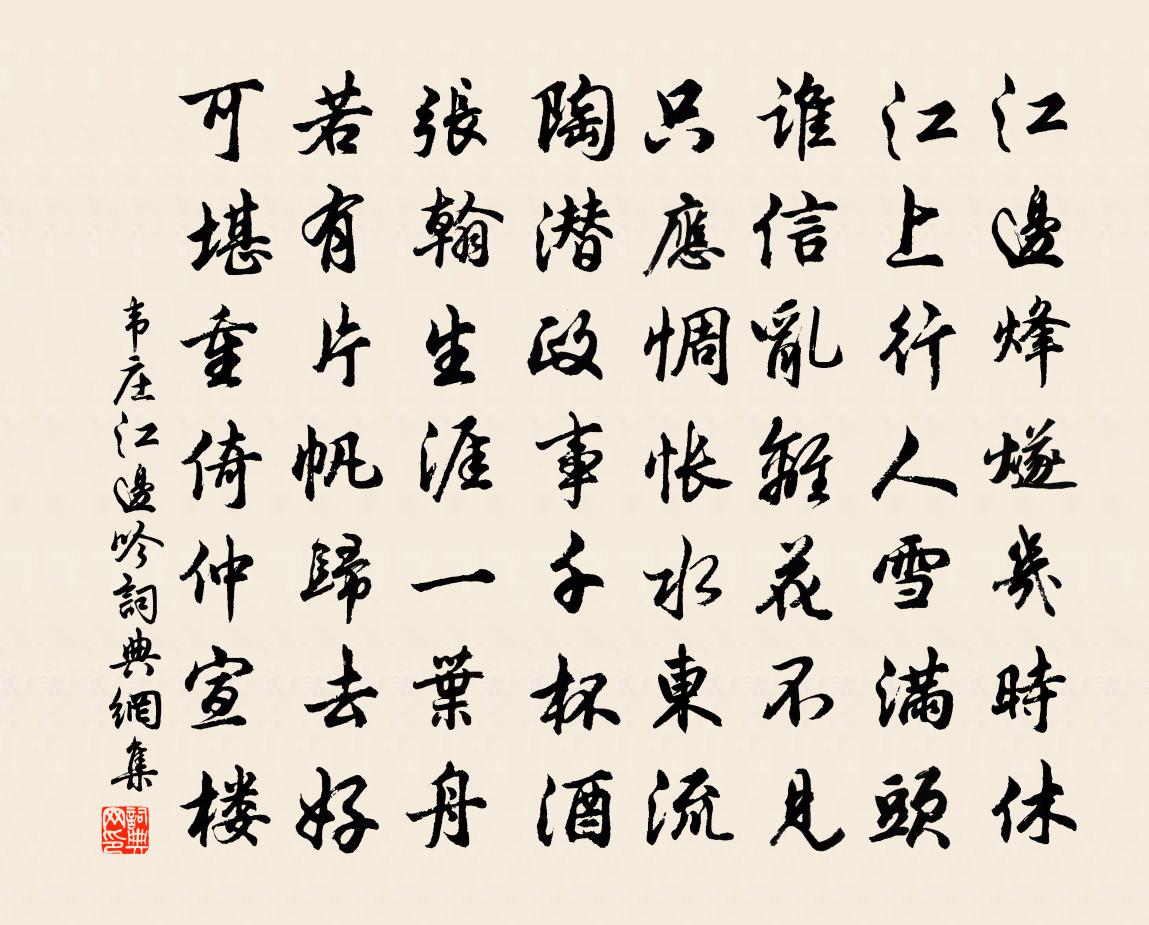 江邊烽燧幾時休
江上行人雪滿頭
谁信亂離花不見
只應惆怅水東流
陶潜政事千杯酒
張翰生涯一葉舟
若有片帆歸去好
可堪重倚仲宣楼
韦庄江邊吟詞典網集
詞典网印